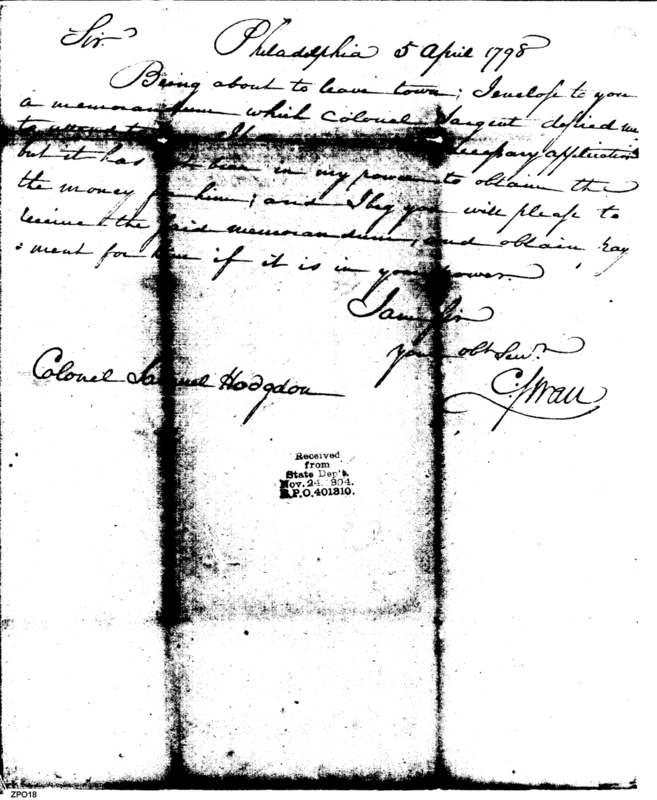 Sir, Philadelphia 5 April 1798
Being about to leave town; I envelope to you
a memorandum which Colonel Sargent desired me
to attend to. necessary application
but it has not been in my power to obtain the
the money for him; and I beg you will please to
receive the said memorandum, and obtain pay
:ment for him if it is in your power.
I am Sir
your obt Servt
C Swan
Colonel Samuel Hodgdon
Received
from
State Dep't.
Nov. 24, 1894.
R.P.O. 401310.
ZPO18